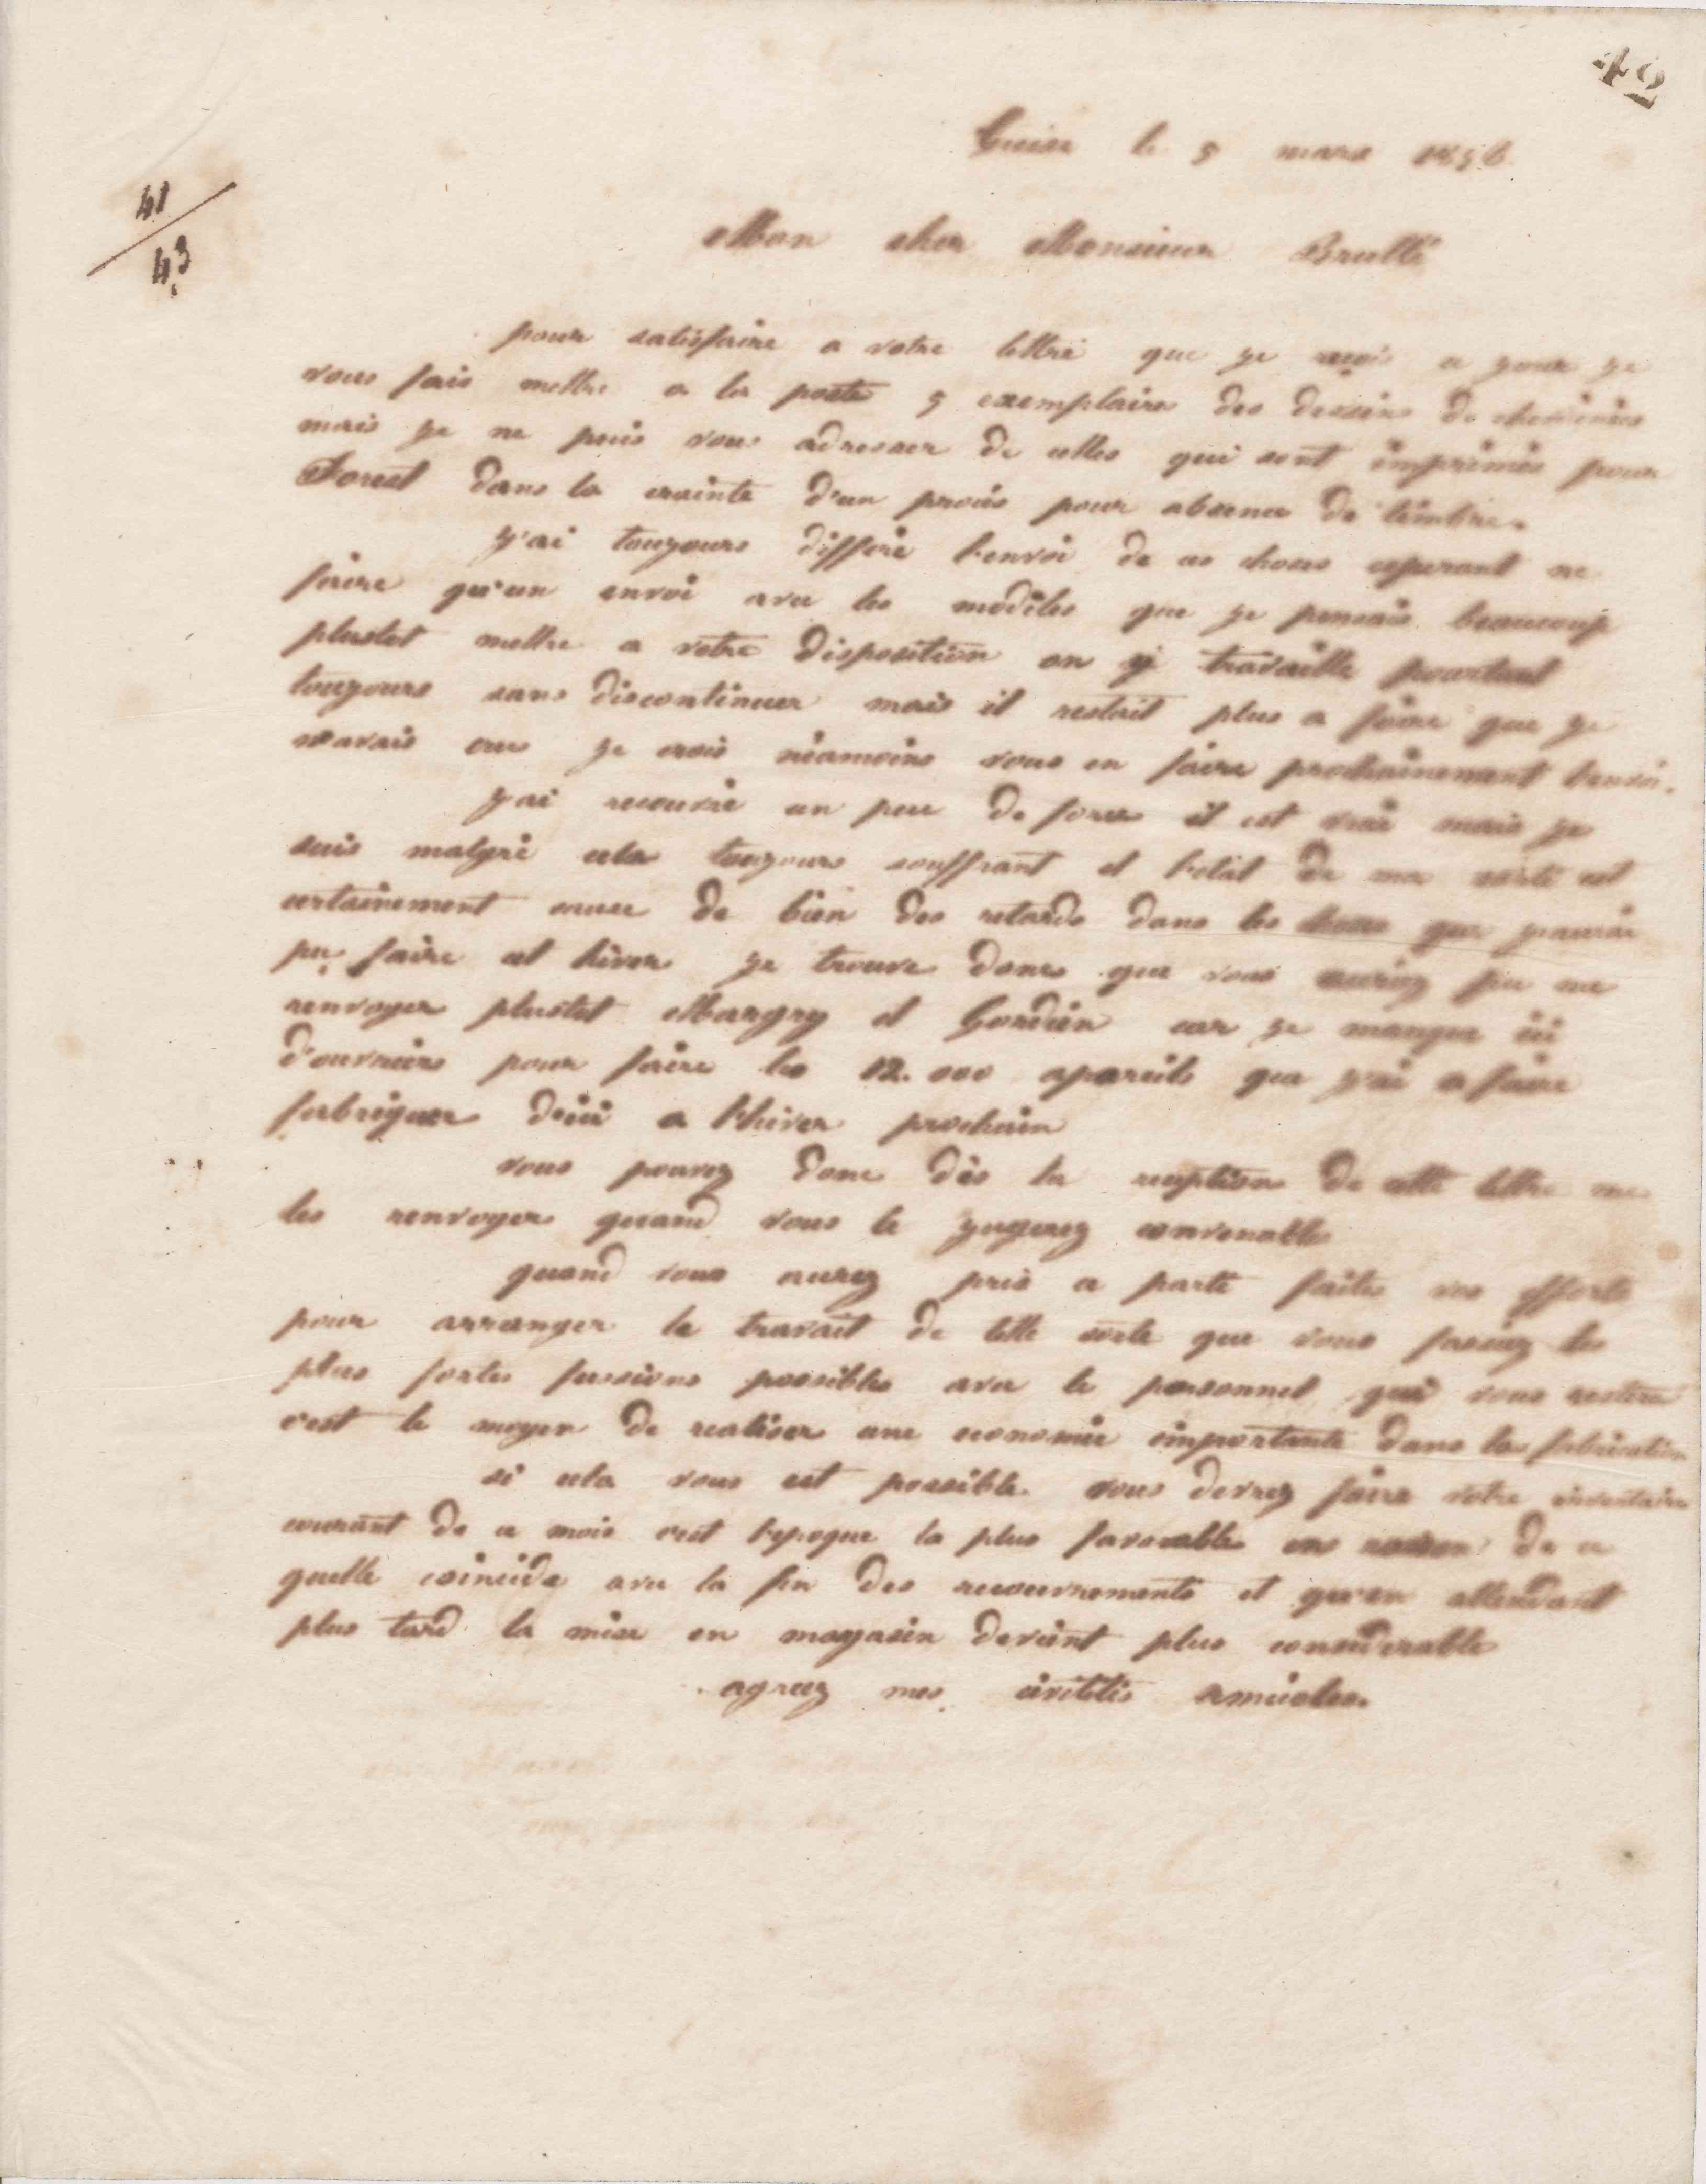 42
Guise le 5 mars 1856
41
43
Mon cher Monsieur Brullé
pour satisfaire a votre lettre que je reçois ce jour je
vous fais mettre a la poste 5 exemplaire des dessins de cheminées
mais je ne puis vous adresser de celles qui sont imprimés pour
Forest dans la crainte d'un procés pour absence de timbre.
j'ai toujours différé l'envoi de ces choses esperant ne
faire qu'un envoi avec les modèles que je pensais beaucoup
plustot mettre a votre disposition on y travaille pourtant
toujours sans discontinuer mais il restait plus a faire que je
navais cru je crois néamoins vous en faire prochainement l'envoi.
j'ai recouvré un peu de force il est vrai mais je
suis malgré cela toujours souffrant et l'etat de ma santé est
certainement cause de bien des retards dans les choses que j'aurai
pu faire cet hiver je trouve donc que vous auriez pu me
renvoyer plustot Margry et Gordien car je manque ici
d'ouvriers pour faire les 12.000 apareils que j'ai a faire
fabriquer d'ici a l'hiver prochain
vous pouvez donc dès la reception de cette lettre me
les renvoyer quand vous le jugerez convenable
quand vous aurez pris ce parti faites vos efforts
pour arranger le travail de telle sorte que vous fassiez les
plus fortes fussions possibles avec le personnel qui vous restera
c'est le moyen de realiser une economie importante dans la fabrication
si cela vous est possible vous devrez faire votre inventaire
courant de ce mois c'est l'epoque la plus favorable en raison de ce
quelle coincide avec la fin des recouvrements et qu'en attendant
plus tard la mise en magasin devient plus considerable
agreez mes civilités amicales.